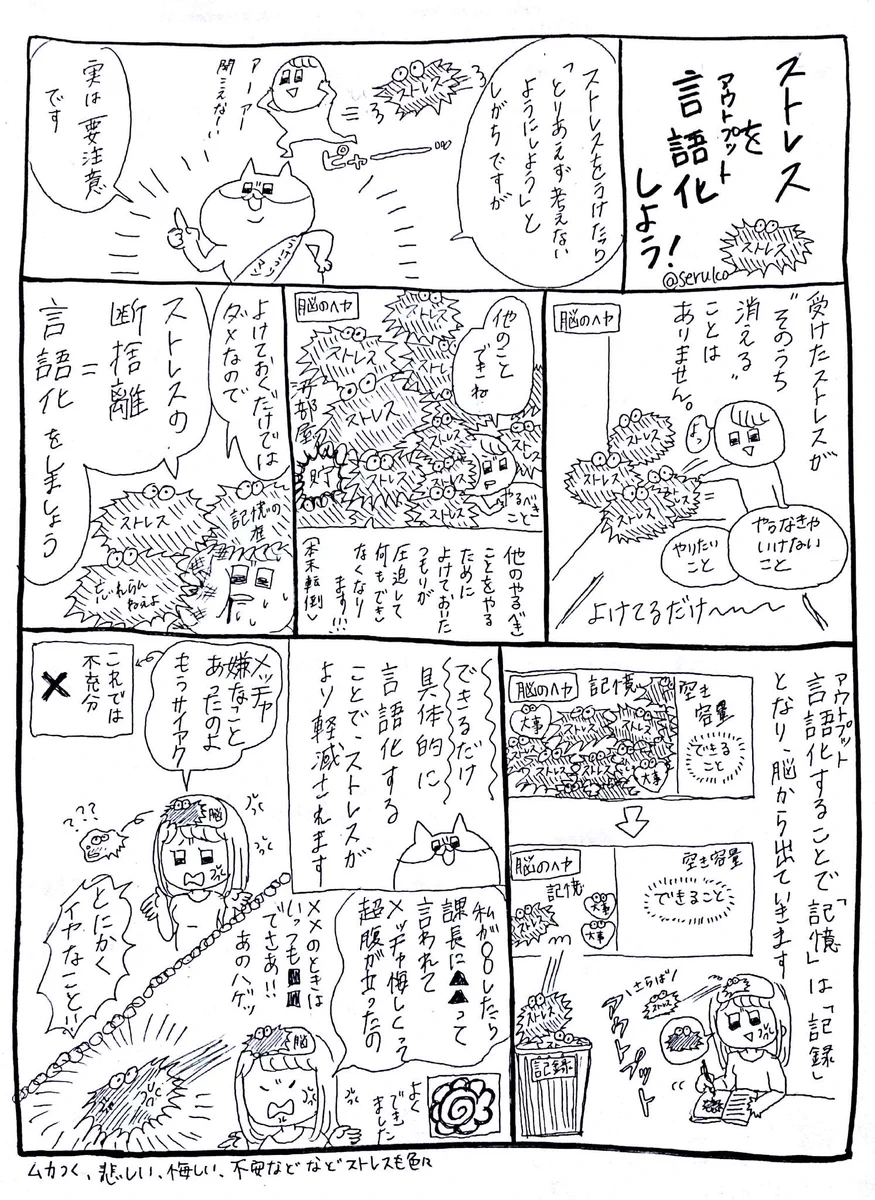 ストレス
を
アウトプット
言語化
しよう!
ストレス
@seruko
ストレスをうけたら
「とりあえず考えない
ようにしよう」と
しがちですが
ストレス
ピャーーー
アーアー
聞こえな〜い
実は要注意
です
受けたストレスが
"そのうち
消える"
ことは
ありません。
脳のヘヤ
よっ
ストレス
ストレス
ストレス
ストレス
やらなきゃ
いけない
こと
やりたい
こと
よけてるだけ〜〜〜
脳のヘヤ
他のこと
できね
ストレス
ストレス
ストレス
ストレス
ストレス
ストレス
ストレス
ストレス
汚部屋
貯
やるべき
こと
他のやるべき
ことをやる
ために
よけておいた
つもりが
圧迫して
何もでき
なくなり
ます!!!
(本末転倒)
よけておくだけでは
ダメなので
ストレスの
断捨離
=
言語化をしましょう
ストレス
記憶の
柱
アウトプット
言語化することで「記憶」は「記録」
となり、脳から出ていきます
脳のヘヤ
記憶
空き
容量
大事
ストレス
ストレス
ストレス
ストレス
大事
できる
こと
脳のヘヤ
記憶
空き容量
大事
大事
ストレス
できること
ストレス
記録
さらば!
ストレス
アウトプット
できるだけ
具体的に
言語化する
ことで、ストレスが
より軽減されます
メッチャ
嫌なこと
あったのよ
もうサイアク
これでは
不充分
×
脳
???
とにかく
イヤなこと!!
私が〇〇したら
課長に▲▲って
言われて
メッチャ悔しくって
超腹が立ったの
××のときは
いっつも■■
でさあ!!
あのハゲッ
脳
よく
できました
ムカつく、悲しい、悔しい、不安などなどストレスも色々